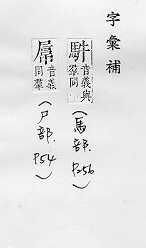 字彙補
音義與
羣同
(馬部.
P256)
音義
同羣
(尸部.
P54)